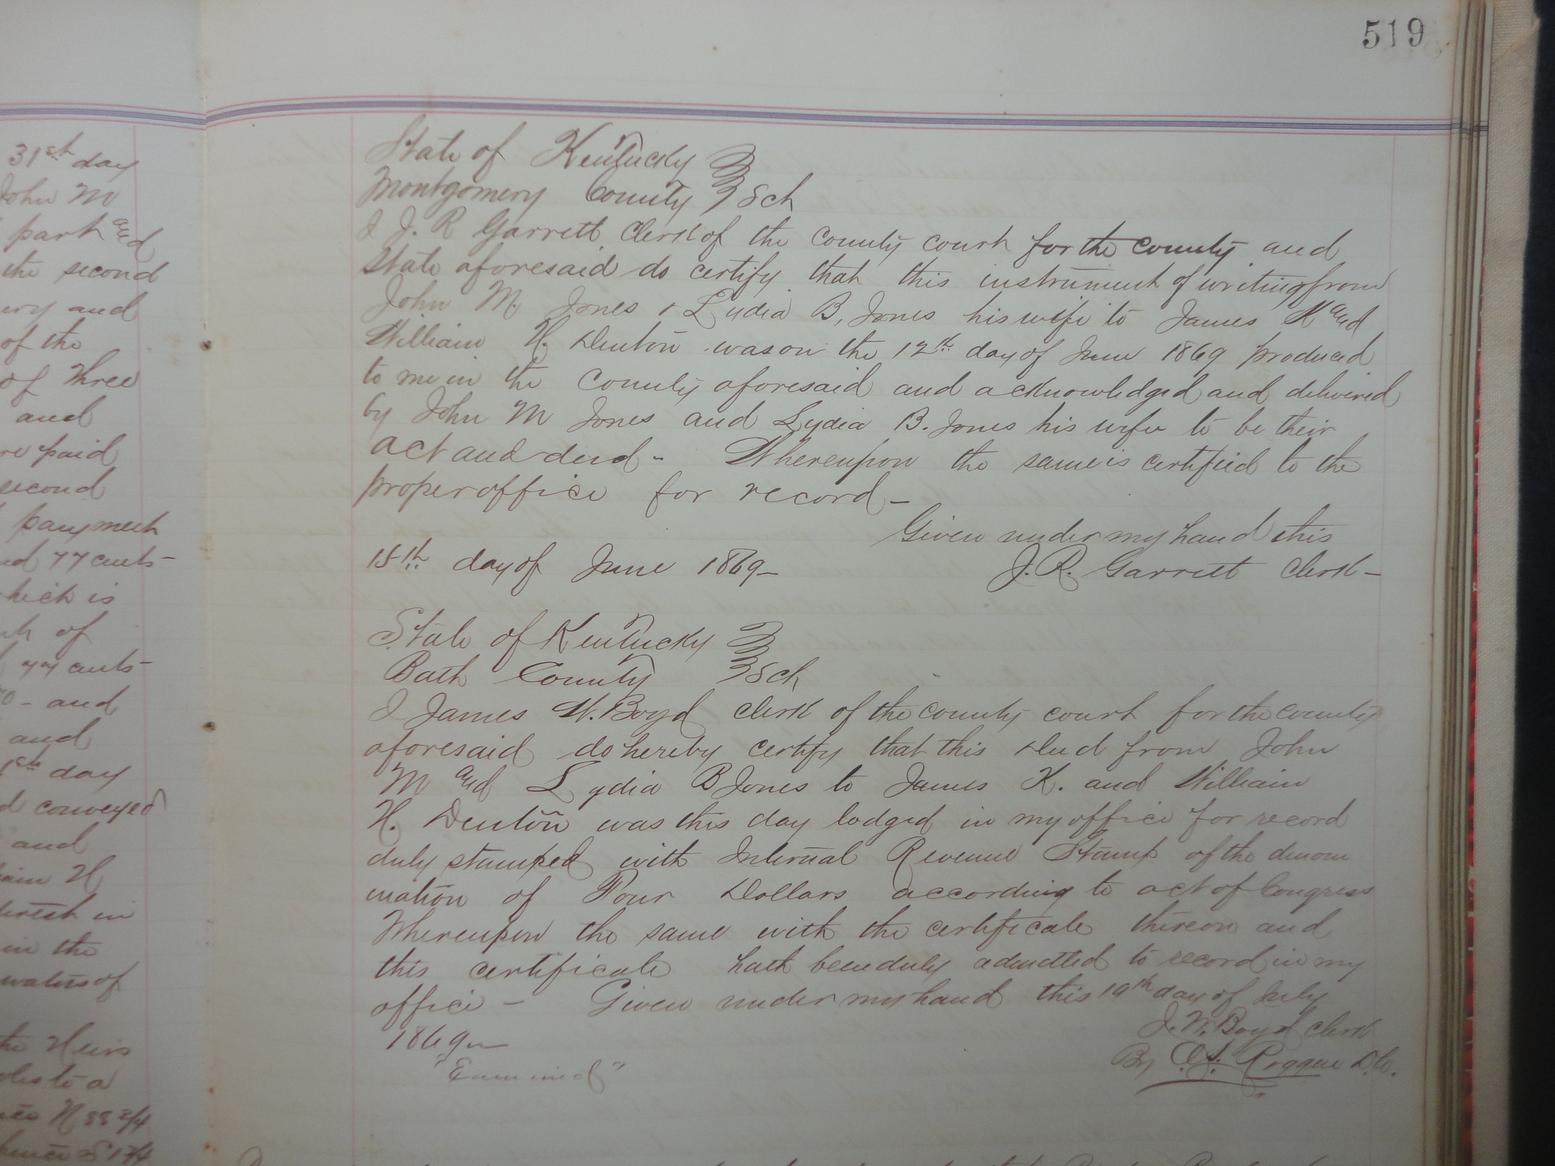 519
31st day
John M
part and
the second
ery and
of the
of Three
and
re paid
second
payment
nd 77 cents-
hich is
of
77 cents-
0- and
and
1st day
d conveyed
and
iam H
terest in
in the
waters of
the Heirs
to a
N 88 3/4
State of Kentucky }
Montgomery County } Sch
I J. R Garrett Clerk of the county court for the county and
State aforesaid do certify that this instrument of writing from
John M. Jones & Lydia B, Jones his wife to James K and
William H. Denton was on the 12th day of June 1869 produced
to me in the County aforesaid and acknowledged and delivered
by John M Jones and Lydia B. Jones his wife to be their
act and deed - Whereupon the same is certified to the
proper office for record -
Given under my hand this
15th day of June 1869- J. R. Garrett Clerk-
State of Kentucky }
Bath County } Sch
I James W. Boyd clerk of the county court for the county
aforesaid do hereby certify that this Deed from John
M and Lydia B Jones to James K. and William
H. Denton was this day lodged in my office for record
duly stamped with Internal Revenue Stamp of the denom
ination of Four Dollars according to act of Congress
Whereupon the same with the certificate thereon and
this certificate hath been duly admitted to record in my
office - Given under my hand this 19th day of July
1869- J. W. Boyd clerk
"Examined" By D.C.